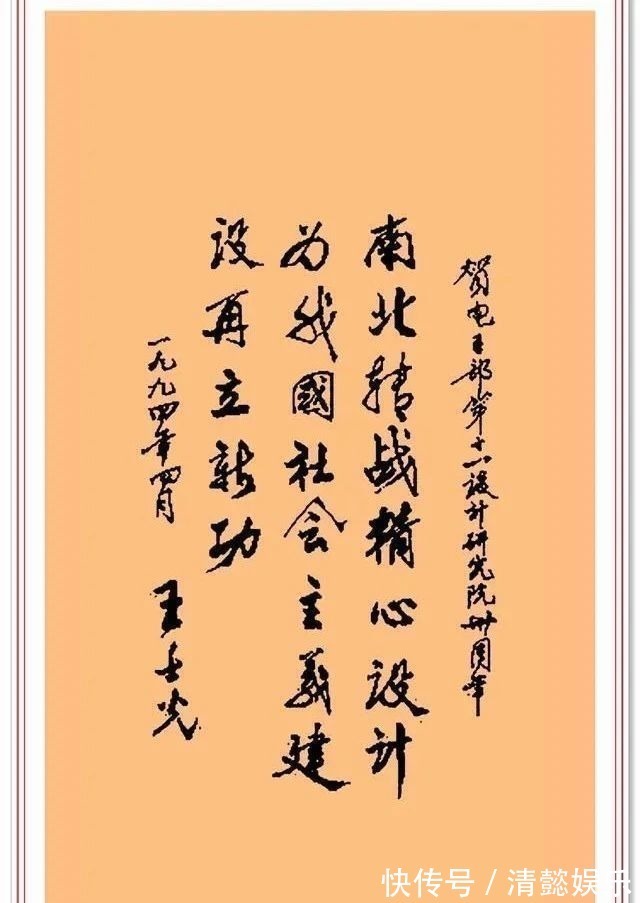 贺电子部第十一设计研究院卅周年
南北转战精心设计
为我国社会主义建
设再立新功
一九九四年四月
王士光
快传号/清懿娱乐